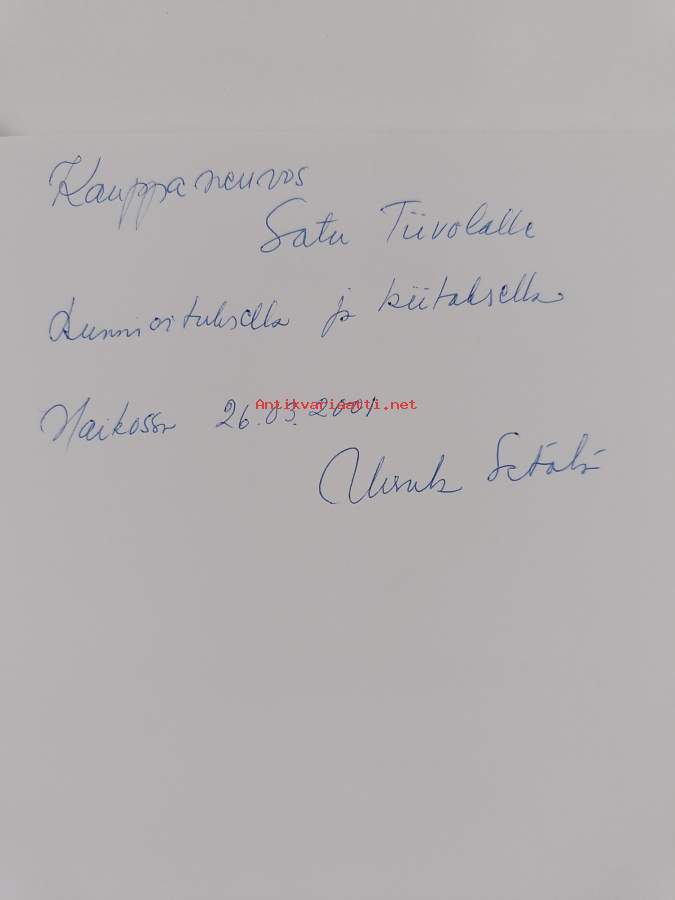 Kauppaneuvos
Satu Tiivolalle
Kunnioituksella ja kiitoksella
Haikossa 26.03.2001
Antikvariaatti.net
Setälä